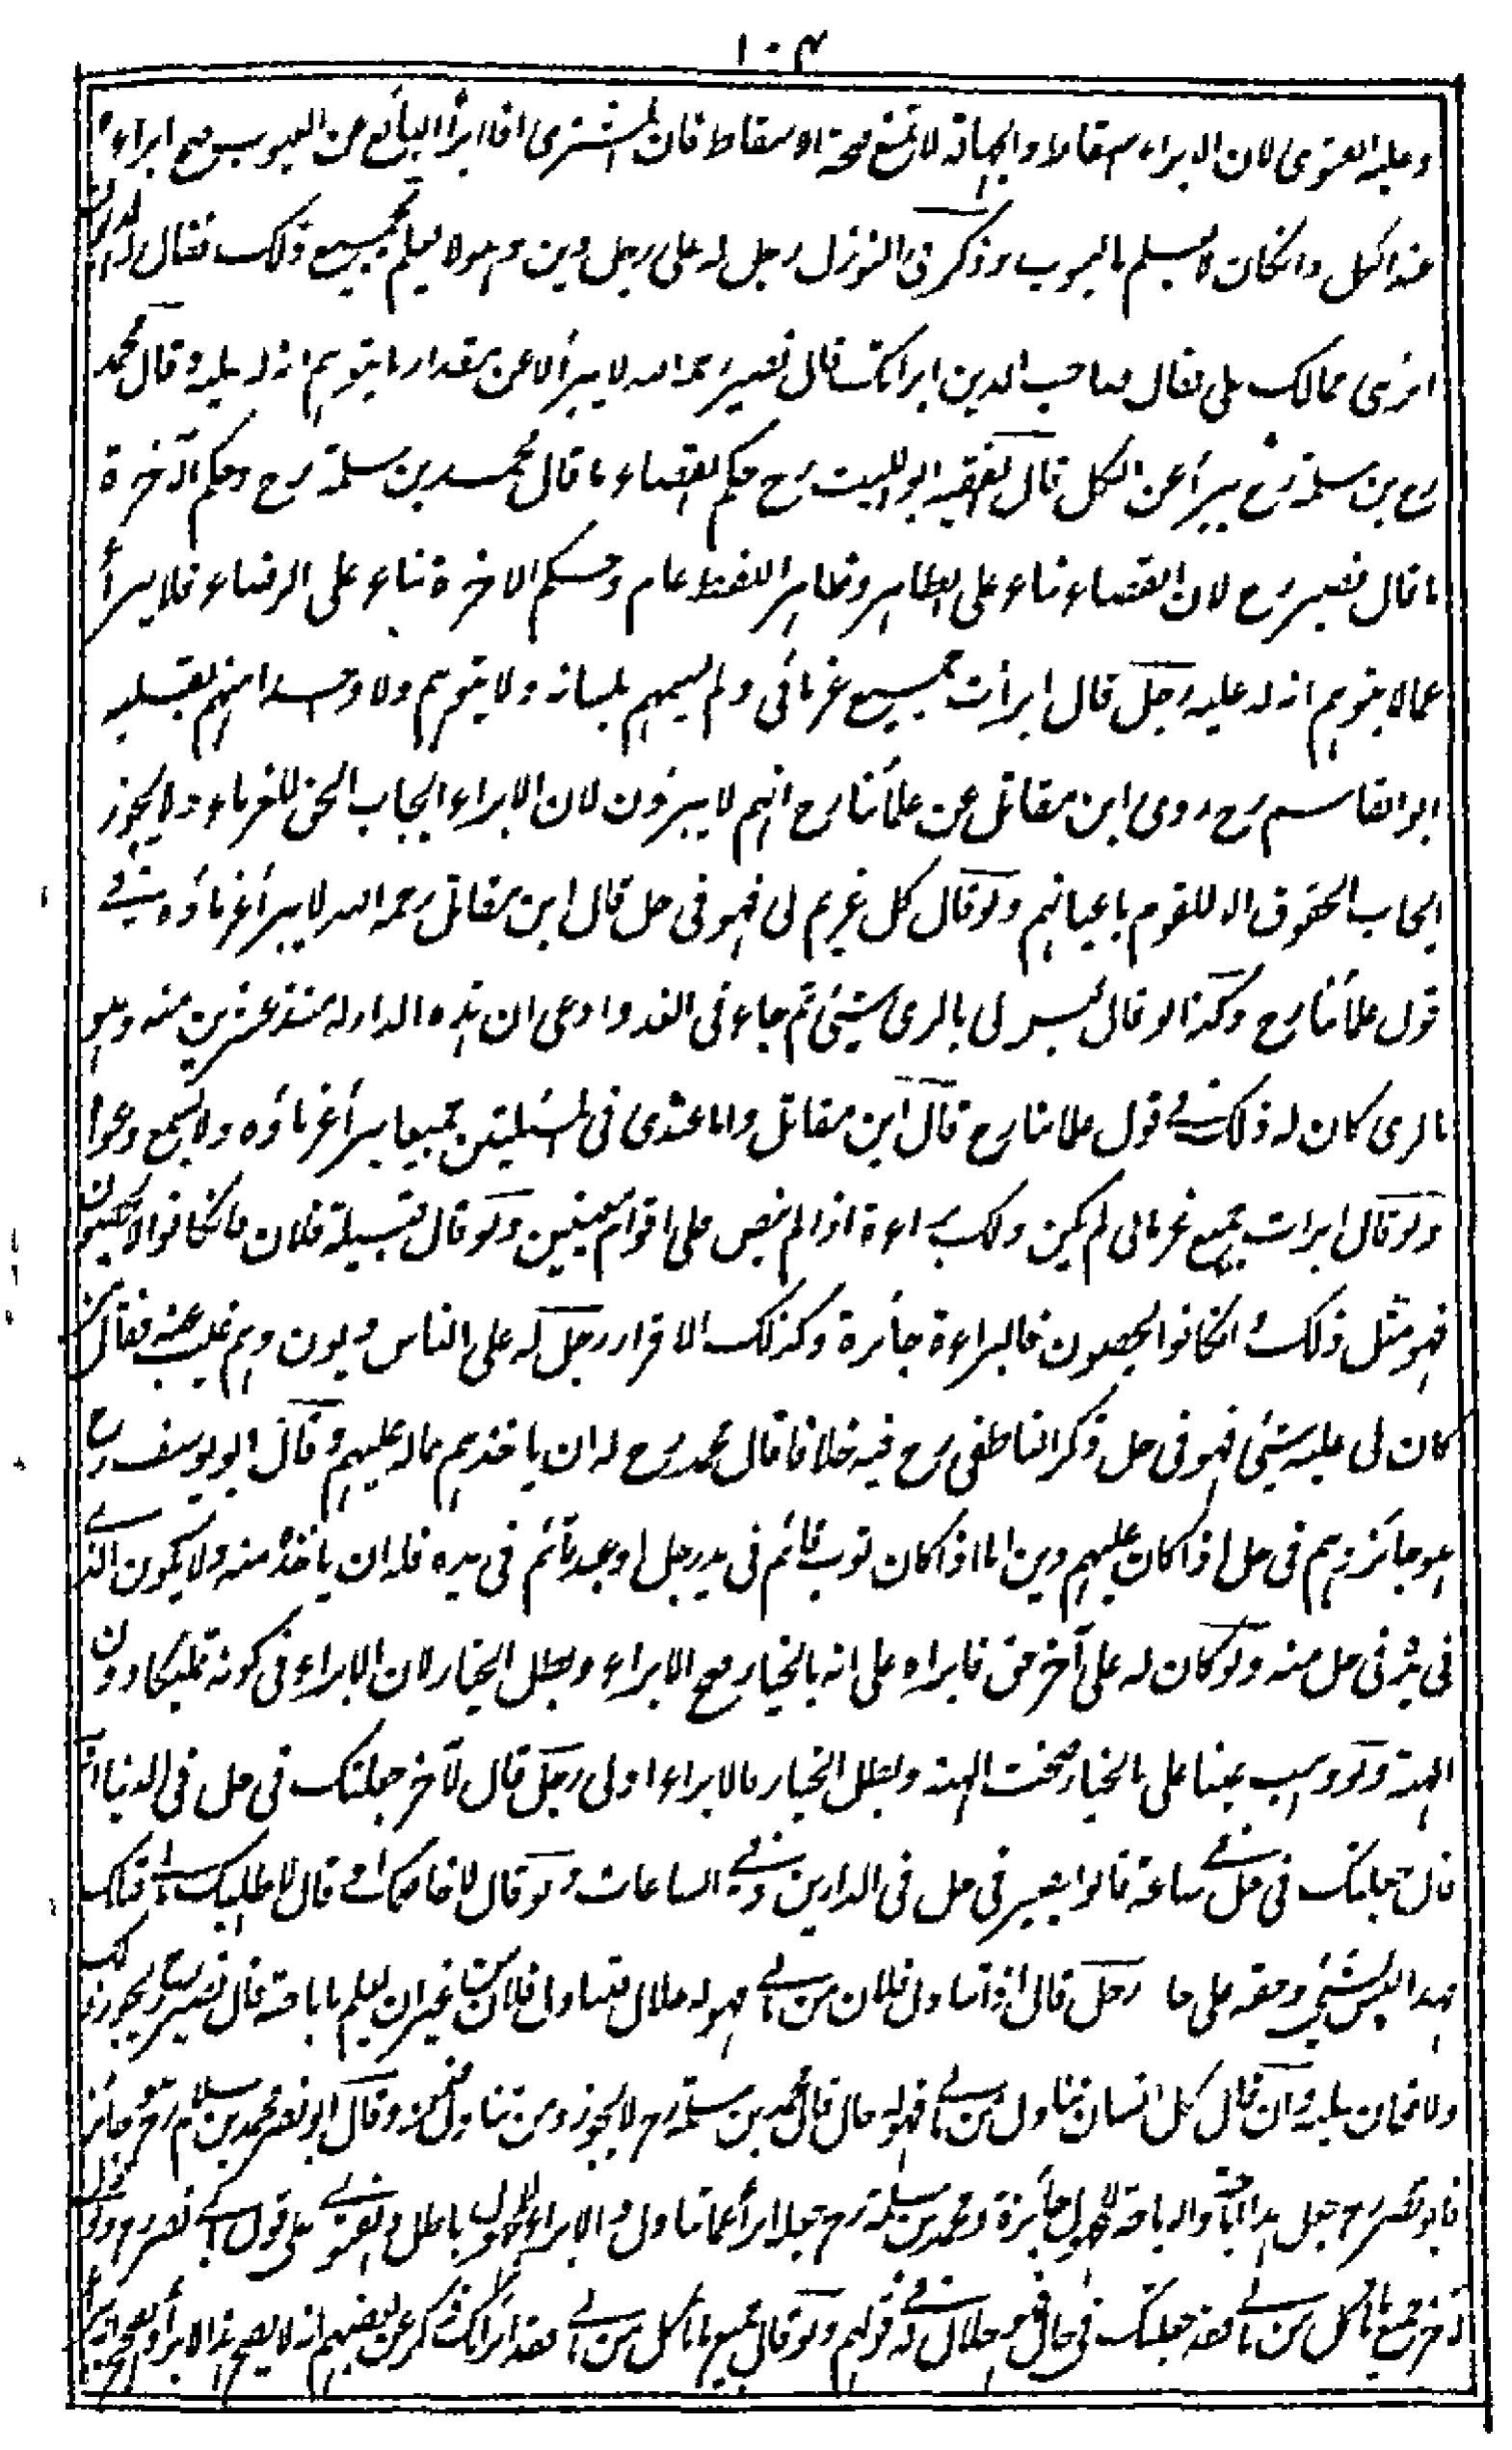 ١٠٤
وعليه الفتوى لان الابراء اسقاط والجهالة لا تمنع صحة الاسقاط فان المشترى اذا ابرأ البائع عن العيوب صح ابراءه
عند الكل وان كان لا يعلم بالعيوب وذكر فى النوازل رجل له على رجل دين وهو لا يعلم بجميع ذلك فقال له المديون
ابرئنى ممالك على فقال صاحب الدين ابرأتك قال نصير رحمه الله لا يبرأ الا عن مقدار ما يتوهم انه له عليه وقال محمد
رح بن سلمة رح يبرأ عن الكل قال الفقيه ابو الليث رح حكم القضاء ما قال محمد بن سلمة رح وحكم الآخرة
ما قال نصير رح لان القضاء بناء على الظاهر وظاهر اللفظ عام وحكم الاخرة بناء على الرضاء فلا يبرأ
عما لا يتوهم انه له عليه رجل قال ابرأت جميع غرمائى ولم يسمهم بلسانه ولا يتوهم ولا وحدا منهم بقلبه
ابو القاسم رح روى ابن مقاتل عن علمائنا رح انهم لا يبرؤن لان الابراء ايجاب الحق للغرماء ولا يجوز
ايجاب الحقوق الا للقوم باعيانهم ولو قال كل غريم لى فهو فى حل قال ابن مقاتل رحمه الله لا يبرأ غرماؤه فى
قول علمائنا رح وكذا لو قال ليس لى بالرى شيئ ثم جاء فى الغد وادعى ان هذه الدار له منذ عشرين سنه وهو
بالرى كان له ذلك فى قول علمائنا رح قال ابن مقاتل واما عندى فى المسئلتين جميعا يبرأ غرماؤه ولا يسمع دعواه
ولو قال ابرات جميع غرمائى لم يكن ذلك براءة اذا لم ينص على اقوام معينين ولو قال قبيلة فلان فان كانوا لا يحصون
فهو مثل ذلك وان كانوا يحصون فالبراءة جائزة وكذلك الاقرار رجل له على الناس ديون وهم غيب عنه فقال من
كان لى عليه شيئ فهو فى حل ذكر الناطفى رح فيه خلافا قال محمد رح له ان ياخذهم بماله عليهم وقال ابو يوسف رح
هو جائز وهم فى حل اذا كان عليهم دين اما اذا كان ثوب قائم فى يد رجل او عبد قائم فى يده فله ان ياخذ منه ولا يكون الذى
فى يده فى حل منه ولو كان له على آخر حق فابراه على انه بالخيار صح الابراء وبطل الخيار لان الابراء فى كونه تمليكا دون
الهبة ولو وهب عينا على بالخيار صحت الهبة وبطل الخيار فالابراء اولى رجل قال لآخر جعلتك فى حل فى الدنيا او
قال جعلتك فى حل ساعة قالوا يصير فى حل فى الدارين وفى الساعات ولو قال لا اخاصمك او قال لا اطلبك مالى قبلك
هذا ليس بشئ وحقه على حاله رجل قال اذا تناول فلان من مالى فهو له حلال فتناول فلان من غير ان يعلم باباحته قال نصير رح يجوز ذلك
ولا ضمان عليه وان قال كل انسان تناول من مالى فهو له حلال قال محمد بن سلمة رح لا يجوز ومن تناول ضمن وقال ابو نصر محمد بن سلام رح هو جائز
فابو نصر رح جعل هذا اباحة والاباحة للمجهول جائزة ومحمد بن سلمة رح جعله ابرأ عما تناول والابراء للمجهول باطل والفتوى على قول ابى نصر رح ولو قال
لآخر جميع ما تاكل من مالى فقد جعلتك فى حل فهو حلال له فى قولهم ولو قال جميع ما تاكل من مالى فقد ابرأتك ذكر عن بعضهم انه لا يصح هذا الابراء